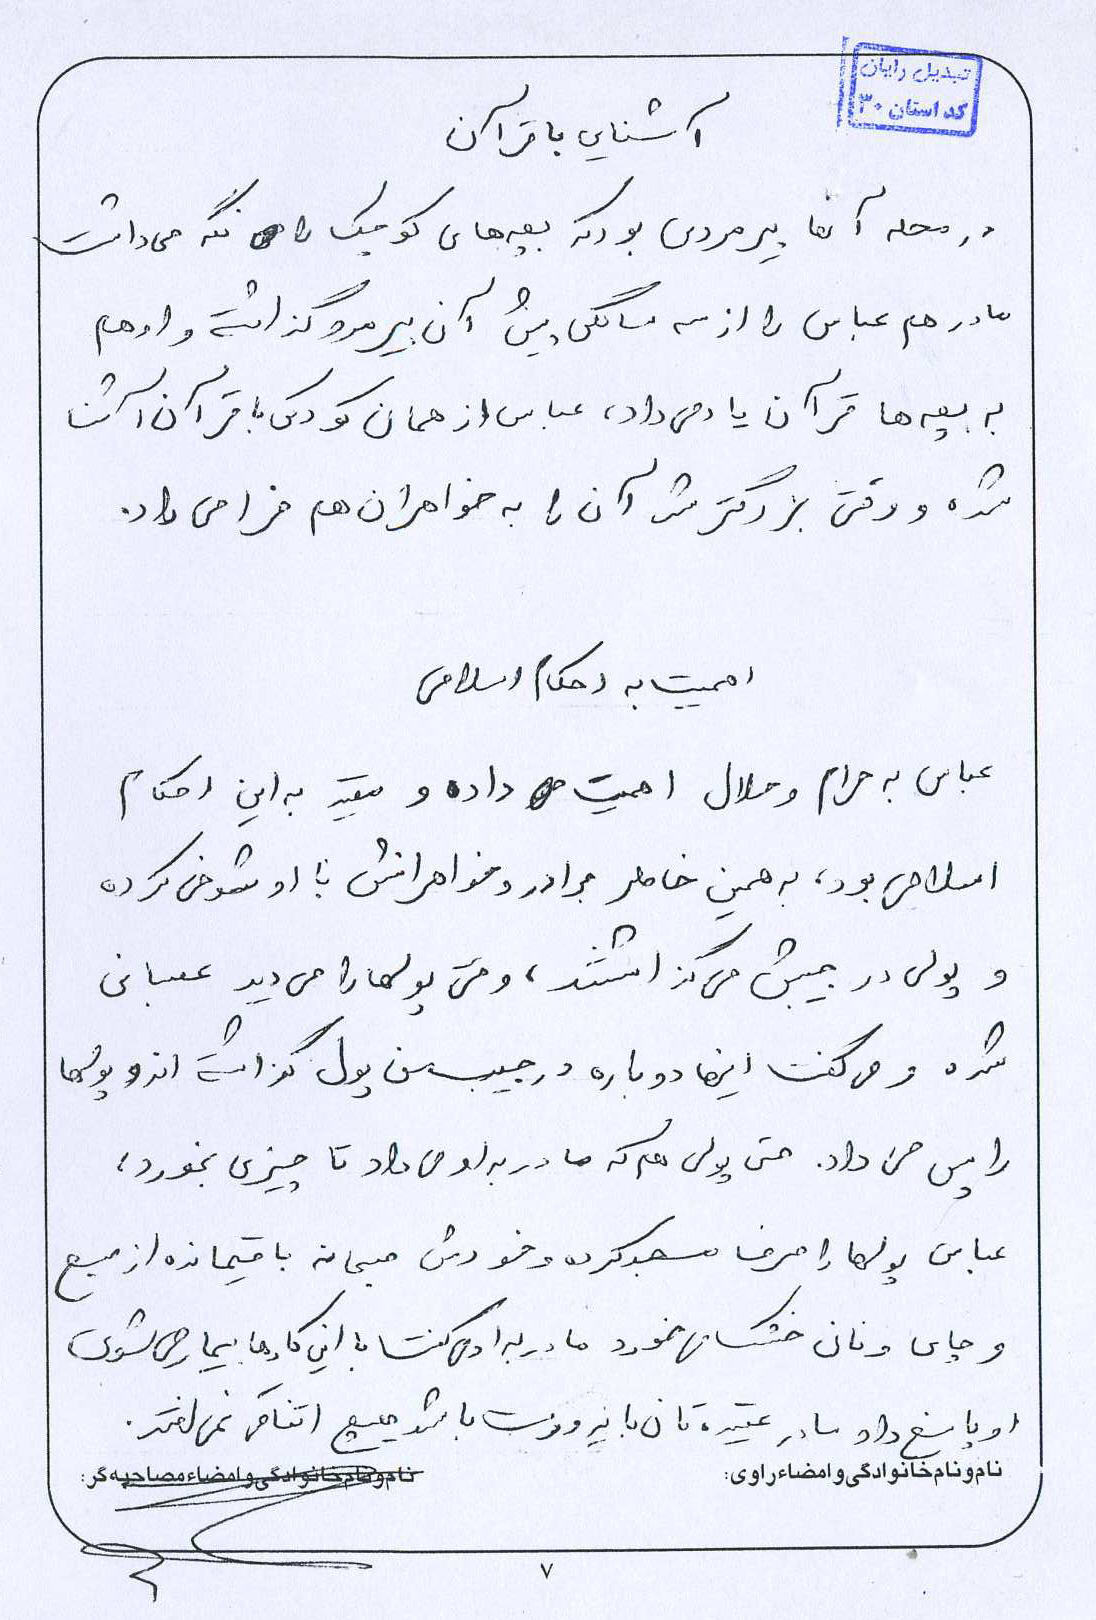 تبدیل رایان
کد استان ۳۰
آشنایی با قرآن
در محله آنها پیرمردی بود که بچه‌های کوچک را نگه می‌داشت
مادر هم عباس را از سه سالگی پیش آن پیرمرد گذاشته و او هم
به بچه‌ها قرآن یاد می‌داد، عباس از همان کودکی با قرآن آشنا
شده و وقتی بزرگتر شد آن را به خواهران هم فرا می‌داد.
اهمیت به احکام اسلامی
عباس به حرام و حلال اهمیت داده و مقید به این احکام
اسلامی بود، به همین خاطر برادر و خواهرانش با او شوخی کرده
و پولی در جیبش می‌گذاشتند، وقتی پولها را می‌دید عصبانی
شده و می‌گفت اینها دوباره در جیب من پول گذاشته اند و پولها
را پس می‌داد. حتی پولی هم که مادر به او می‌داد تا چیزی بخورد،
عباس پولها را صرف مسجد کرده و خودش صبحانه باقیمانده از صبح
و چای و نان خشک می‌خورد مادر به او می‌گفت با این کارها بیمار می‌شوی
او پاسخ داد مادر عقیده تان باید درست باشد هیچ اتفاقی نمی‌افتد.
نام و نام خانوادگی و امضاء راوی: نام و نام خانوادگی و امضاء مصاحبه‌گر:
۷